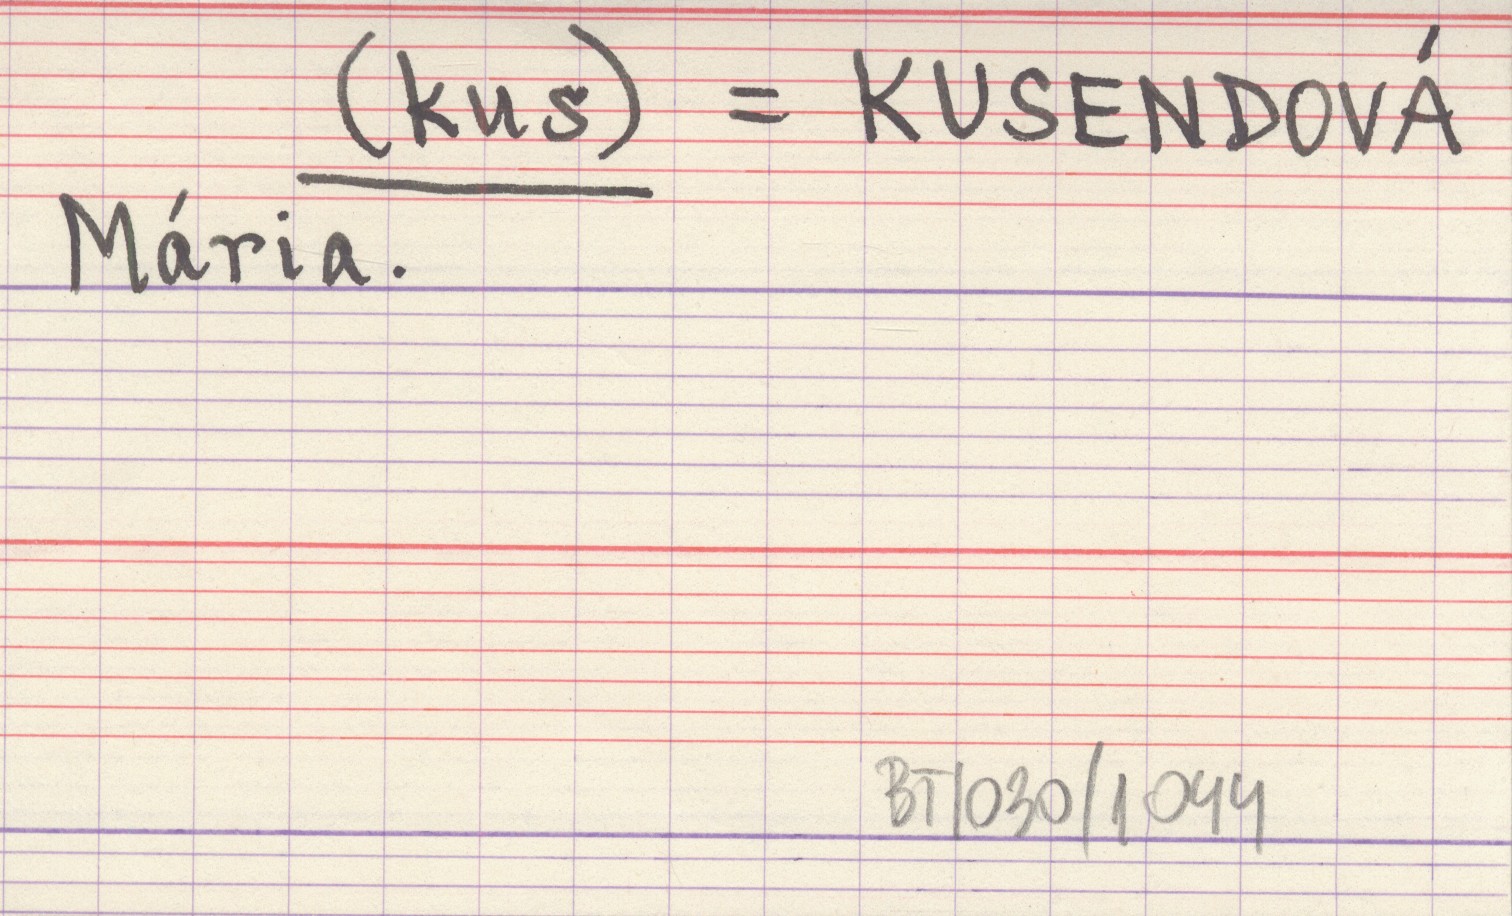 (kus) = KUSENDOVÁ
Mária.
BT/030/1044